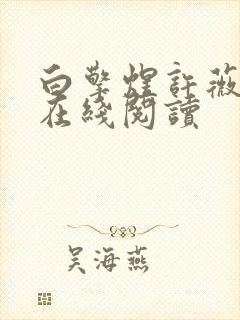 白擎煜許薇
在綫閱讀
吴海燕